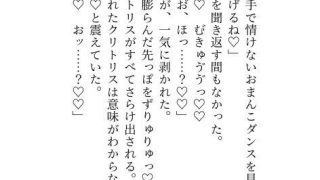 手で情けないおまんこダンスを見
げるね♡」
を聞き返す間もなかった。
♡　むきゅゔゔっ♡♡
お、ほっ……？♡♡」
が、一気に剥かれた。
膨らんだ先っぽをずりゅりゅっ♡
トリスがすべてさらけ出される。
♡と震えていた。
れたクリトリスは意味がわからな
♡　おッ……？♡♡」